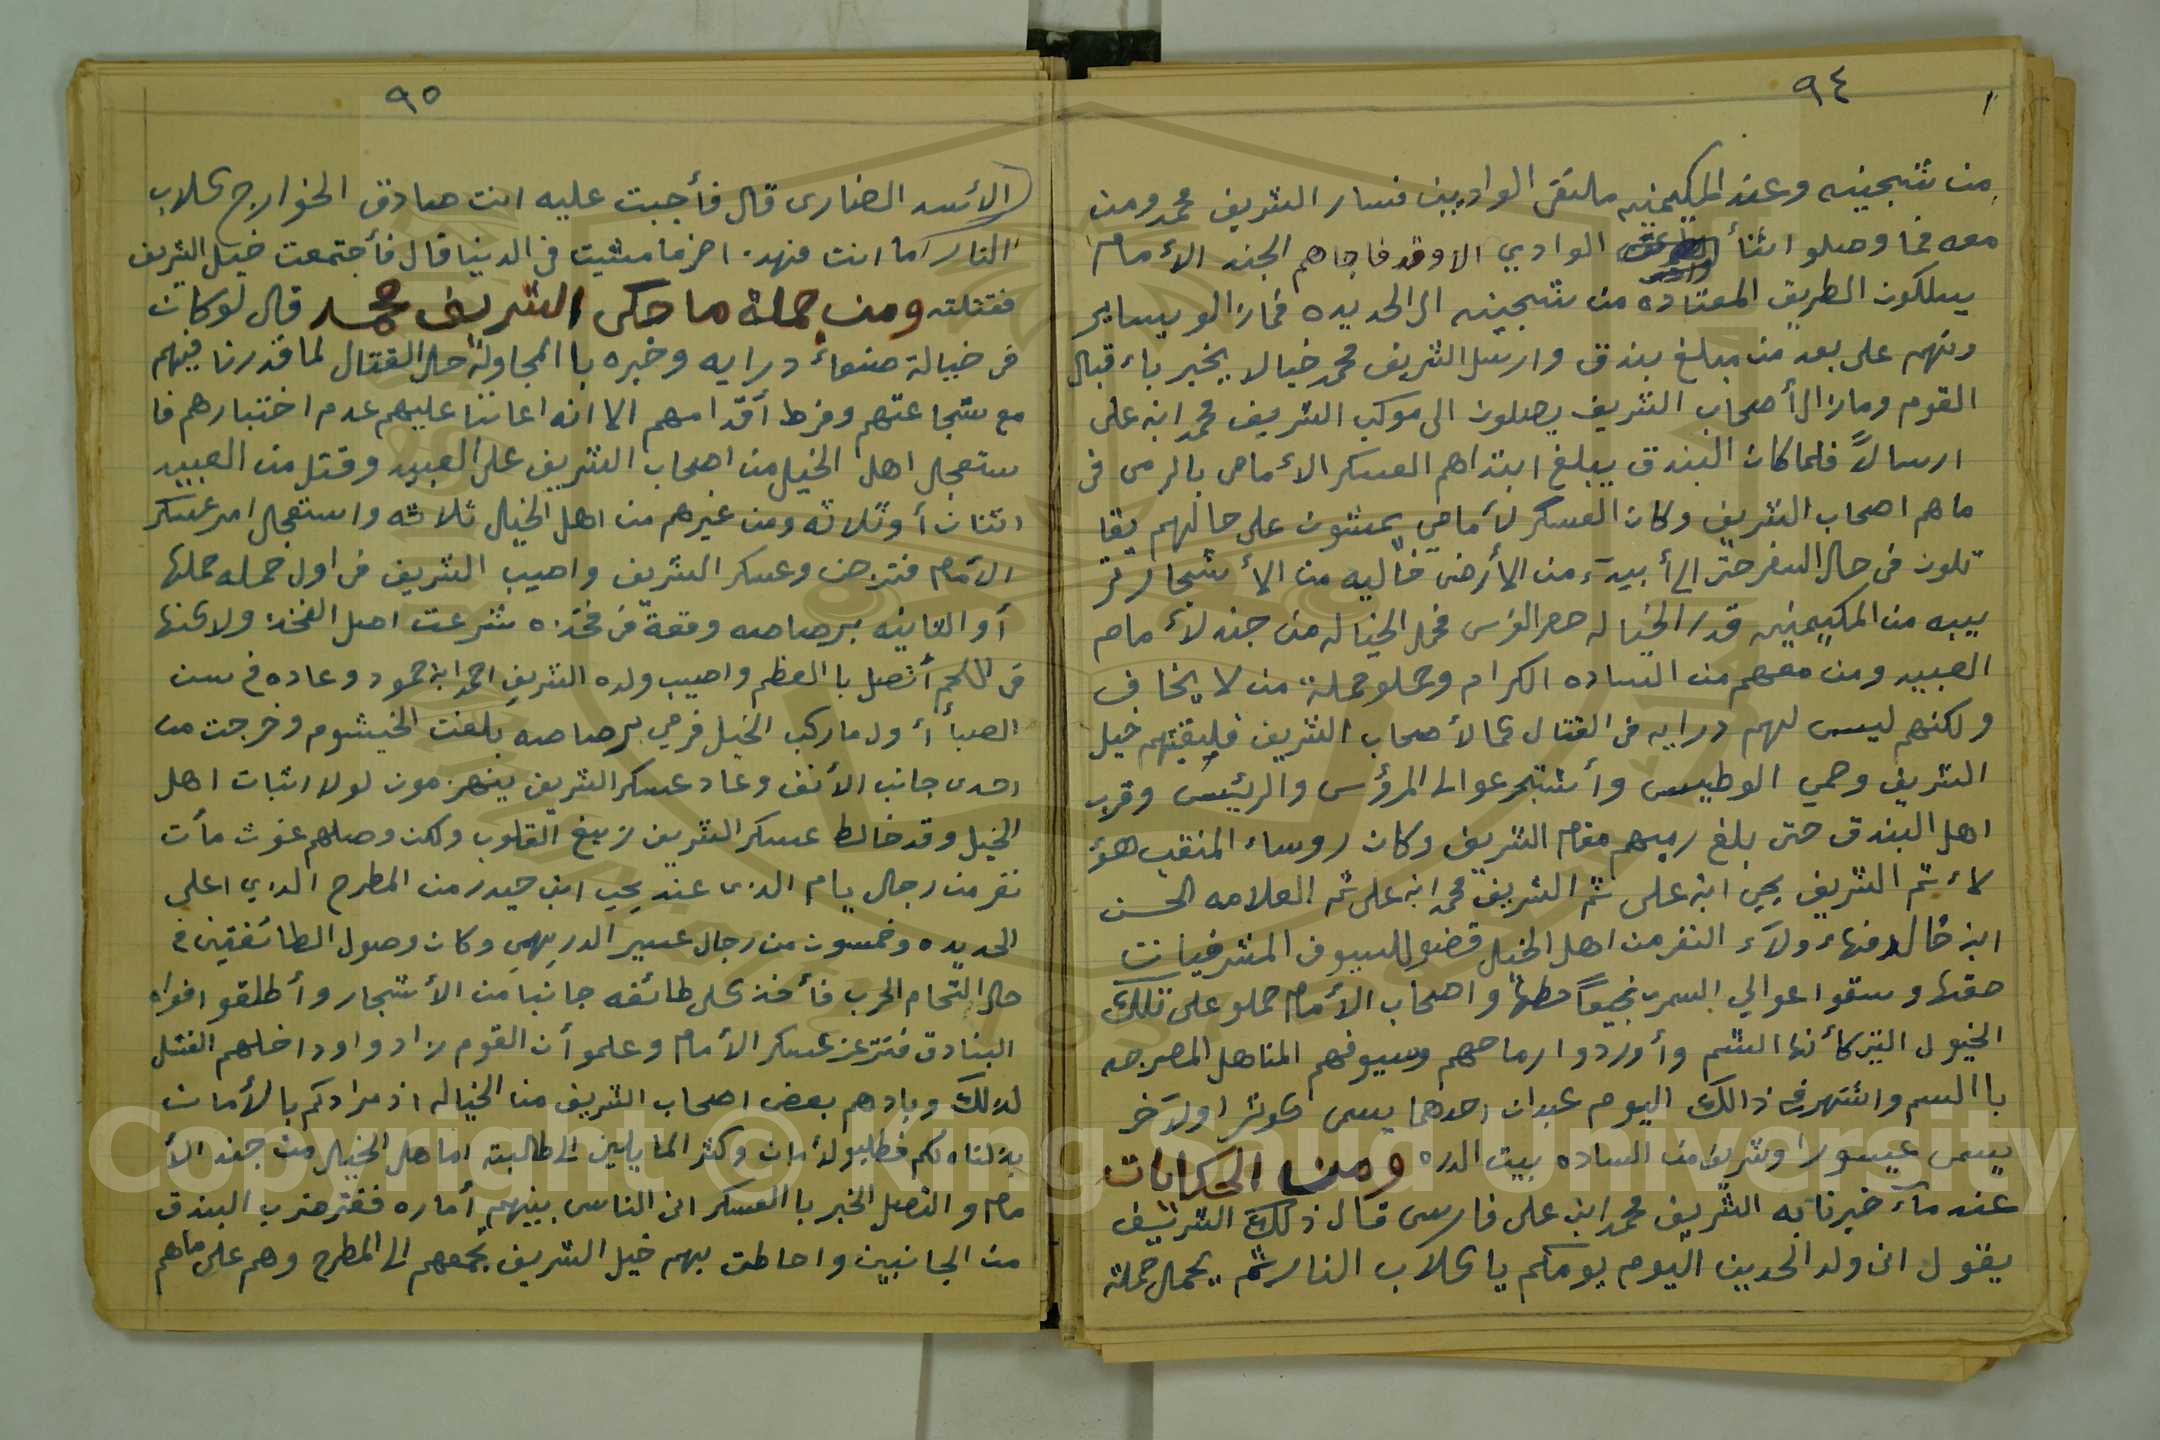 ٩٤
من شجينه وعند المكيمنيه ملتقى الواديين فسار الشريف محمد ومن
معه فما وصلو اثنأ الوادي الا وقد فاجاهم الجند الأمام
يسلكون الطريق المعتاده من شجينه الى الحديده فمازالو يساير
ونهم على بعد من مبلغ بندق وارسل الشريف محمد خيالا يخبر باءقبال
القوم ومازال أصحاب الشريف يصلون الى موكب الشريف محمد ابن على
ارسالاً فلما كان البندق يبلغ ابتداهم العسكر الأمامى بالرمى فر
ماهم اصحاب الشريف وكان العسكر لأمامي يمشون على حالهم يقا
تلون فى حال السفر حتى الى أبيدآء من الأرض خاليه من الأشجار قر
يبه من المكيمنيه قدر الخياله حصر الفرس فحمل الخياله من جند لأمام
العبيد ومن معهم من الساده الكرام وحملو حملة من لا يخاف
ولكنهم ليس لهم درايه فى القتال كما لأصحاب الشريف فليقيتهم خيل
الشريف وحمي الوطيس وأشتجر عوالى المرؤس والرئيس وقرب
اهل البندق حتى بلغ رميهم مقام الشريف وكان روساء المنقب هؤ
لاء ثم الشريف يحيى ابن على ثم الشريف محمد ابن على ثم العلامه الحسن
ابن خالد فهاءولآء النفر من اهل الخيل قضو للسيوف المشرفيات
حقها وسقوا عوالي السمر نجيعاً حطها واصحاب الأمام حملو على تلك
الخيول التى كأنها الشم وأوردوا رماحهم وسيوفهم المناهل المصرحه
باالسم واشتهر فى ذالك اليوم عبدان احدهما يسمى كوثرا ولآخر
يسمى عيسورا وشريف من الساده بيت الدره ومن الحكايات
عند مآء خبرنا به الشريف محمد ابن على فارس قال ذلك الشريف
يقول انى ولد الحدين اليوم يومكم يا كلاب النار ثم يحمل حملة
٩٥
الأسد الضارى قال فأجبت عليه انت صادق الخوارج كلاب
النار اما انت منهم اخر مامشيت فى الدنيا قال فأجتمعت خيل الشريف
فقتلته ومن جملة ما حكى الشريف محمد قال لو كان
فى خيالة صنعاء درايه وخبره باالمجاولة حال القتال لما قدرنا فيهم
مع شجاعتهم وفرط أقدامهم الا انه اعاننا عليهم عدم اختبارهم فا
ستعجل اهل الخيل من اصحاب الشريف على العبيد وقتل من العبيد
اثنان أوثلاثه ومن غيرهم من اهل الخيل ثلاثه واستعجال امر عسكر
الأمام فتزحف وعسكر الشريف واصيب الشريف فى اول حمله حملها
أو الثانيه برصاصه وقعة فى فخذه شرعت اصل الفخذ ولاكنها
فى اللحم أتصل باالعظم واصيب ولده الشريف احمد ابن حمود وعاده فى سن
الصبأ أول ماركب الخيل فرمي برصاصه بلغت الخيشوم وخرجت من
احدى جانب الأنف وعاد عسكر الشريف ينهزمون لولا اثبات اهل
الخيل وقد خالط عسكر الشريف زيغ القلوب ولكن وصلهم غوث مأت
نفر من رجال يام الذى عند يحيى ابن حيدر من المطرح الذي اعلى
الحديده وخمسون من رجال عسير الدريهمي وكان وصول الطائفتين فى
حال التحام الحرب فأخذ كل طائفه جانبا من الأشجار وأطلقو افواه
البنادق فتزعز عسكر الأمام وعلمو أن القوم زادو اود اخلهم الفشل
لذلك وبادهم بعض اصحاب الشريف من الخياله اذ مرادكم بالأمان
بذلناه لكم فطلبو لأمان وكثر المايلين الى طالبته اما هل الخيل من جند الأ
مام واتصل الخبر باالعسكر ان الناس بينهم أماره ففتر ضرب البندق
من الجانبين واحاطت بهم خيل الشريف تجمعهم الى المطرح وهم على ماهم
Copyright © King Saud University